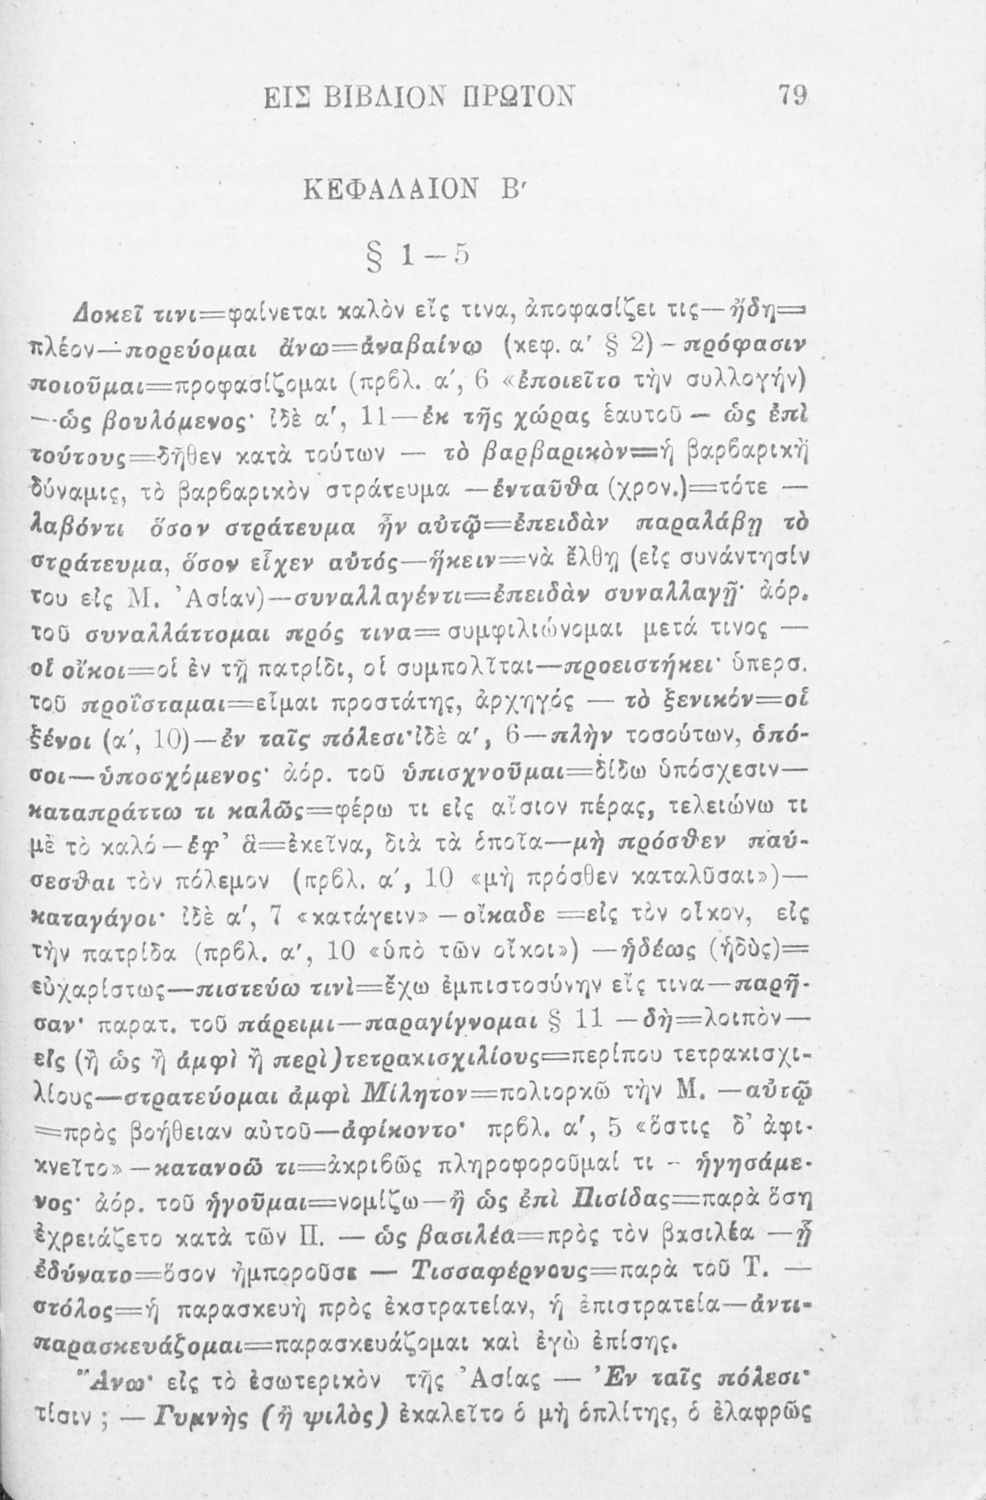 ΕΙΣ ΒΙΒΛΙΟΝ ΠΡΩΤΟΝ 79
ΚΕΦΑΛΑΙΟΝ Β′
§ 1 — 5
Δοκεῖ τινι=φαίνεται καλὸν εἴς τινα, ἀποφασίζει τις—ἤδη=
πλέον—πορεύομαι ἄνω=ἀναβαίνω (κεφ. α′ § 2) — πρόφασιν
ποιοῦμαι=προφασίζομαι (πρβλ. α′, 6 «ἐποιεῖτο τὴν συλλογήν)
—ὡς βουλόμενος· ἰδὲ α′, 11—ἐκ τῆς χώρας ἑαυτοῦ — ὡς ἐπὶ
τούτους=δῆθεν κατὰ τούτων — τὸ βαρβαρικὸν=ἡ βαρβαρικὴ
δύναμις, τὸ βαρβαρικὸν στράτευμα —ἐνταῦθα (χρον.)=τότε —
λαβόντι ὅσον στράτευμα ἦν αὐτῷ=ἐπειδὰν παραλάβῃ τὸ
στράτευμα, ὅσον εἶχεν αὐτός—ἥκειν=νὰ ἔλθῃ (εἰς συνάντησίν
του εἰς Μ. Ἀσίαν)—συναλλαγέντι=ἐπειδὰν συναλλαγῇ· ἀόρ.
τοῦ συναλλάττομαι πρός τινα=συμφιλιώνομαι μετά τινος —
οἱ οἴκοι=οἱ ἐν τῇ πατρίδι, οἱ συμπολῖται—προειστήκει· ὑπερσ.
τοῦ προΐσταμαι=εἶμαι προστάτης, ἀρχηγός — τὸ ξενικόν=οἱ
ξένοι (α′, 10)—ἐν ταῖς πόλεσι·ἰδὲ α′, 6—πλὴν τοσούτων, ὁπό-
σοι—ὑποσχόμενος· ἀόρ. τοῦ ὑπισχνοῦμαι=δίδω ὑπόσχεσιν—
καταπράττω τι καλῶς=φέρω τι εἰς αἴσιον πέρας, τελειώνω τι
μὲ τὸ καλό—ἐφ’ ἃ=ἐκεῖνα, διὰ τὰ ὁποῖα—μὴ πρόσθεν παύ-
σεσθαι τὸν πόλεμον (πρβλ. α′, 10 «μὴ πρόσθεν καταλῦσαι»)—
καταγάγοι· ἰδὲ α′, 7 «κατάγειν» —οἴκαδε =εἰς τὸν οἶκον, εἰς
τὴν πατρίδα (πρβλ. α′, 10 «ὑπὸ τῶν οἴκοι») —ἡδέως (ἡδὺς)=
εὐχαρίστως—πιστεύω τινὶ=ἔχω ἐμπιστοσύνην εἴς τινα—παρῆ-
σαν· παρατ. τοῦ πάρειμι—παραγίγνομαι § 11 —δὴ=λοιπὸν—
εἰς (ἢ ὡς ἢ ἀμφὶ ἢ περὶ)τετρακισχιλίους=περίπου τετρακισχι-
λίους—στρατεύομαι ἀμφὶ Μίλητον=πολιορκῶ τὴν Μ. —αὐτῷ
=πρὸς βοήθειαν αὐτοῦ—ἀφίκοντο· πρβλ. α′, 5 «ὅστις δ’ ἀφι-
κνεῖτο»—κατανοῶ τι=ἀκριβῶς πληροφοροῦμαί τι - ἡγησάμε-
νος· ἀόρ. τοῦ ἡγοῦμαι=νομίζω—ἢ ὡς ἐπὶ Πισίδας=παρὰ ὅση
ἐχρειάζετο κατὰ τῶν Π. — ὡς βασιλέα=πρὸς τὸν βασιλέα —ᾗ
ἐδύνατο=ὅσον ἠμποροῦσε — Τισσαφέρνους=παρὰ τοῦ Τ. —
στόλος=ἡ παρασκευὴ πρὸς ἐκστρατείαν, ἡ ἐπιστρατεία—ἀντι-
παρασκευάζομαι=παρασκευάζομαι καὶ ἐγὼ ἐπίσης.
Ἄνω· εἰς τὸ ἐσωτερικὸν τῆς Ἀσίας — Ἐν ταῖς πόλεσι·
τίσιν ; — Γυμνὴς (ἢ ψιλὸς) ἐκαλεῖτο ὁ μὴ ὁπλίτης, ὁ ἐλαφρῶς